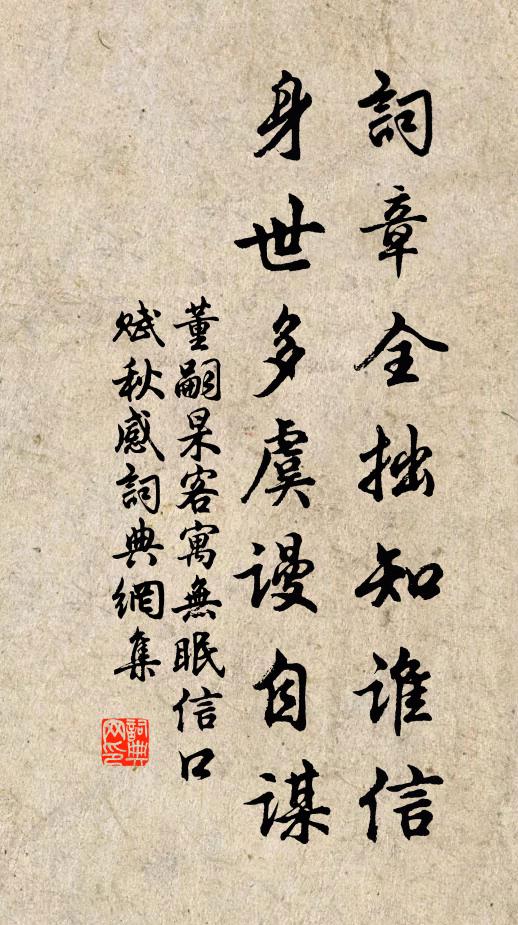 詞章全拙知誰信
身世多虞謾自謀
董嗣杲客寓無眠信口
賦秋感詞典網集
詞典網印